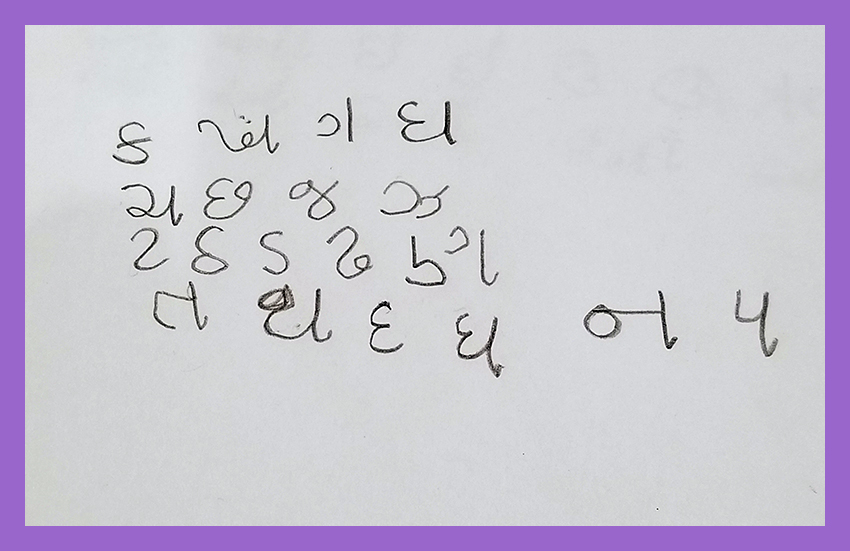 ક ખ ગ ઘ
ચ છ જ ઝ
ટ ઠ ડ ઢ ણ
ત થ દ ધ ન પ